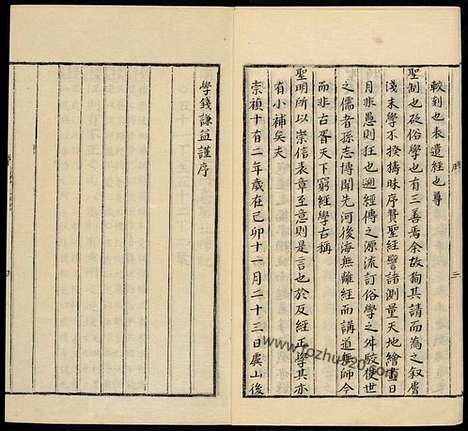 較刻也表遺經也尊
聖制也砭俗學也有三善焉余故徇其請而為之叙膚
淺末學不揆擣昧序贊聖經譬諸測量天地繪畫日
月非愚則狂也遡經傳之源流訂俗學之舛駮使世
之儒者孫志博聞先河後海無離經而講道無師今
而非古胥天下窮經學古稱
聖明所以崇信表章至意則是言也於反經正學其亦
有小補矣夫
崇禎十有二年歲在己卯十一月二十三日虞山後
學錢謙益謹序
三
www.1ezhu520.com